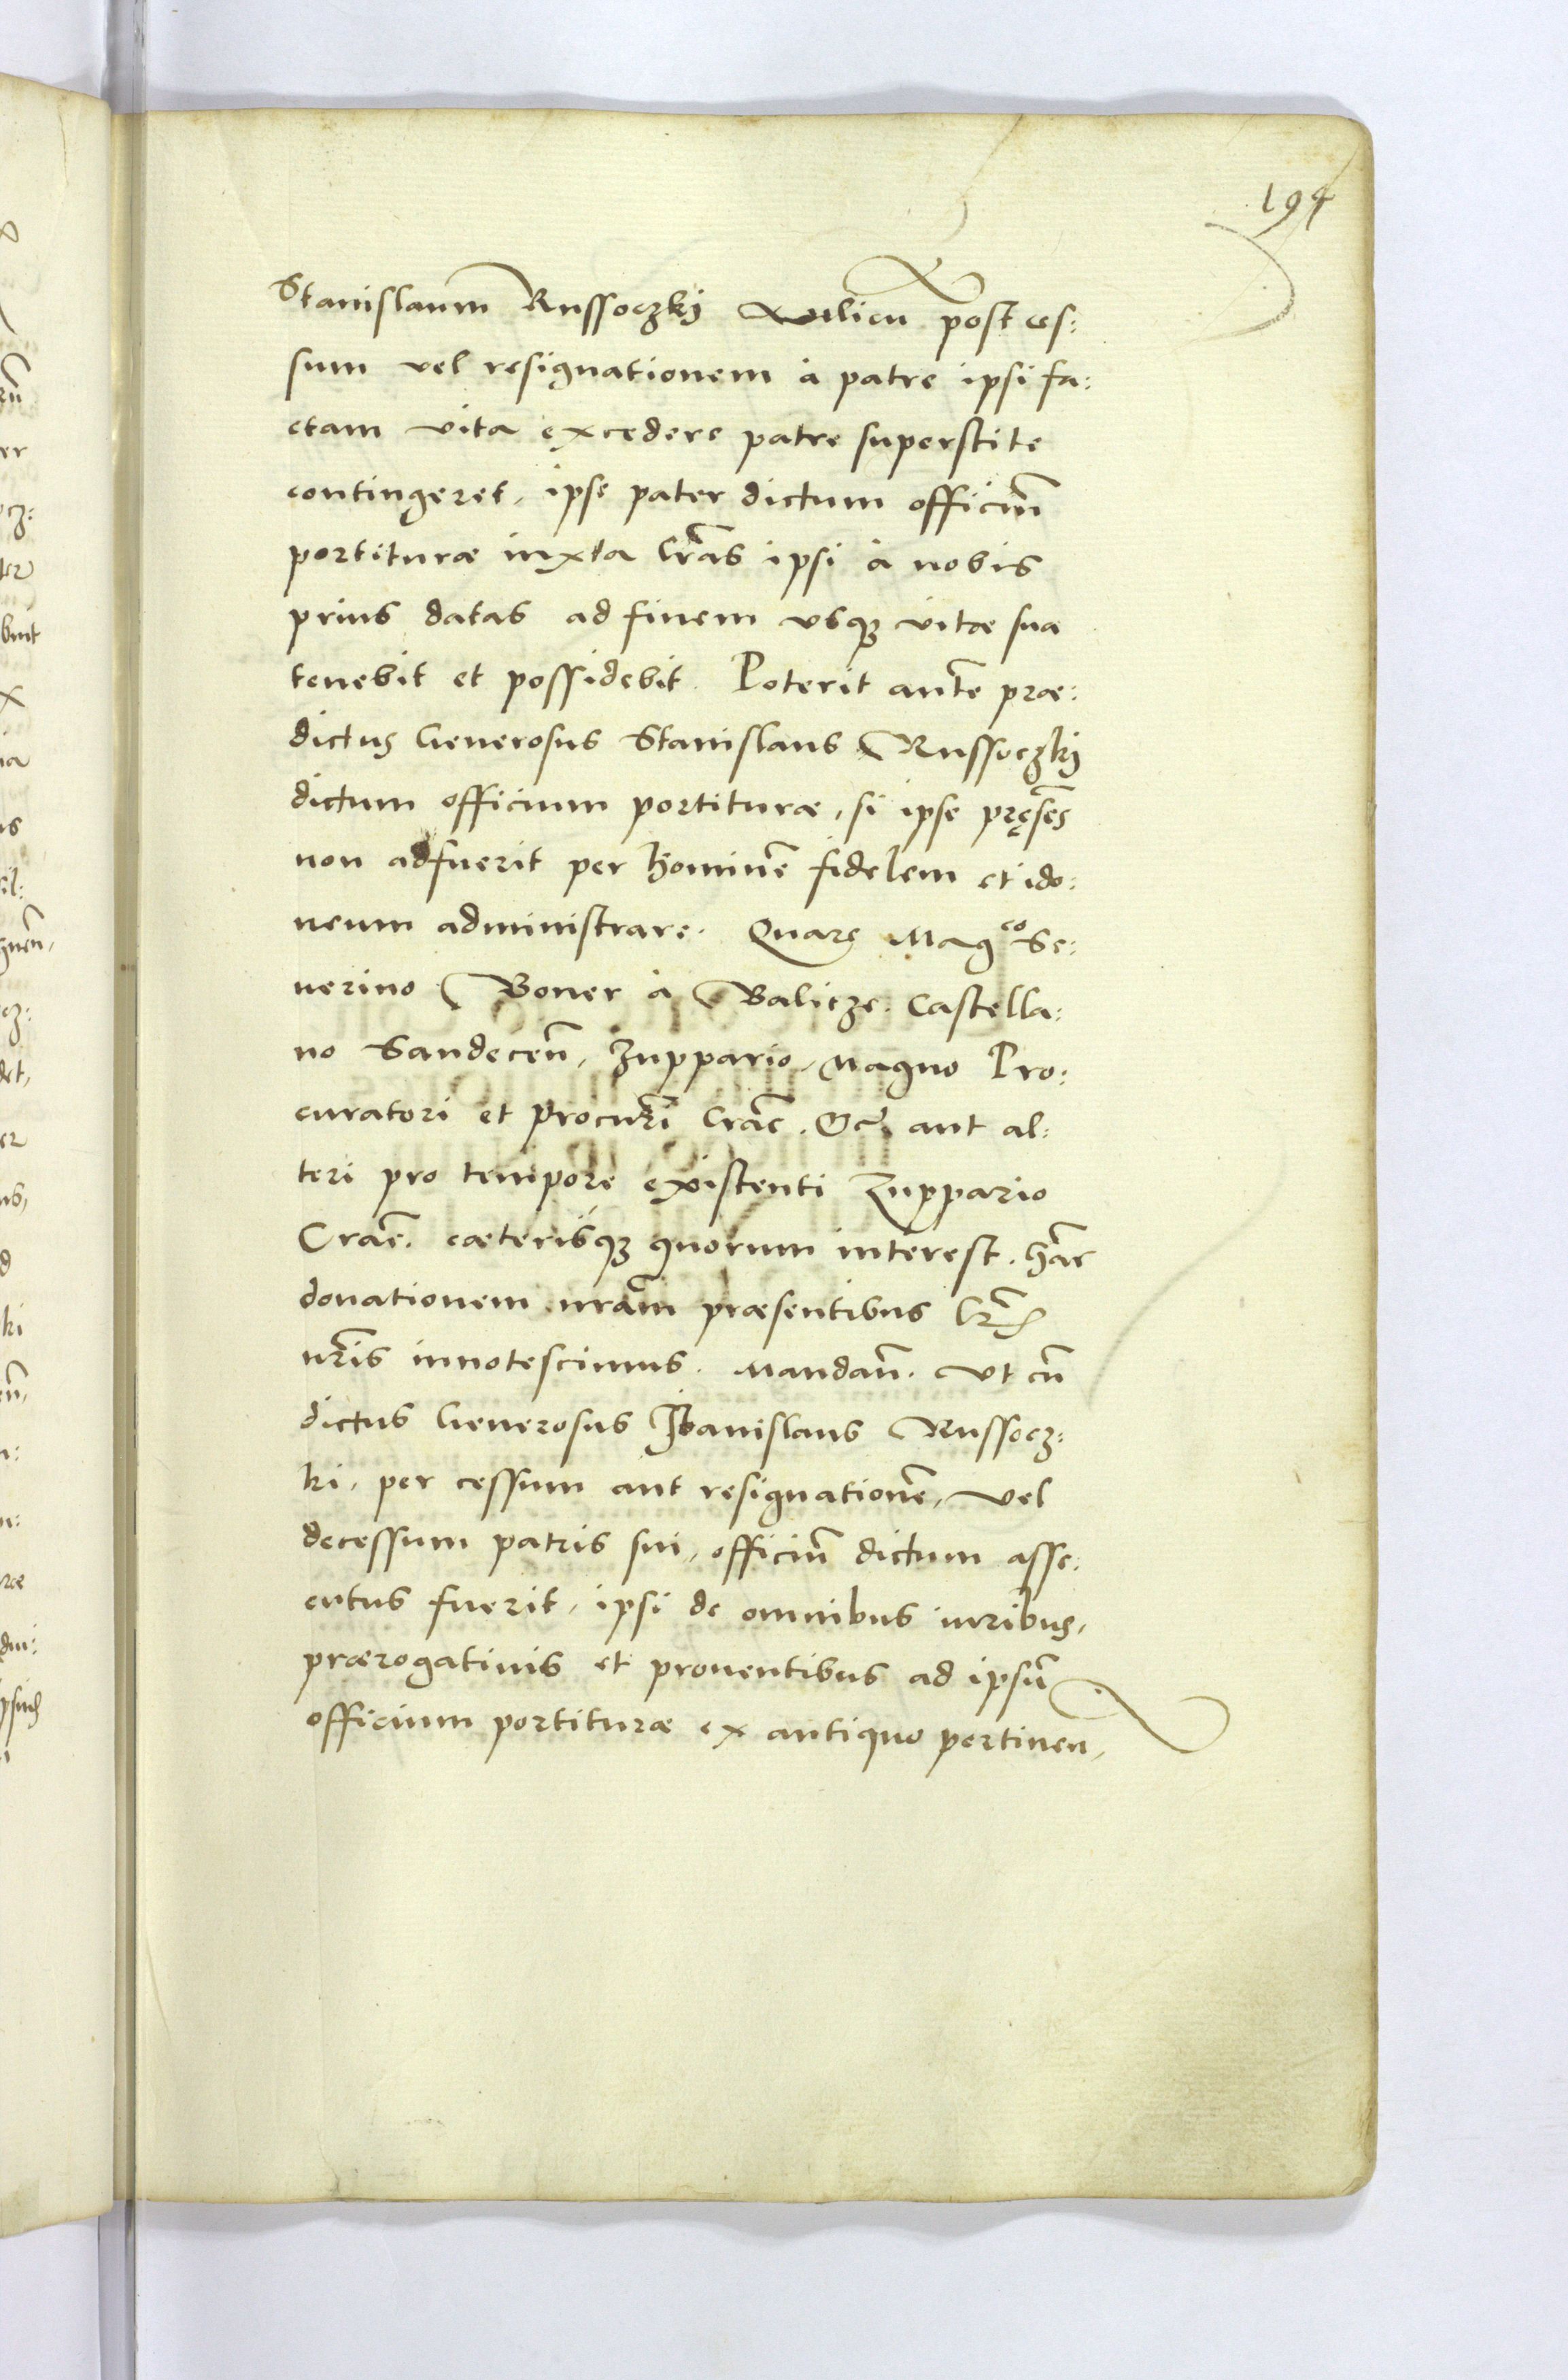 194
Stanislaum Russoczkj post ces:
sum vel resignationem à patre ipsi fa:
ctam vita excedere patre superstite
contingeret, ipse pater dictum officiū
portituræ iuxta lr̄as ipsi à nobis
prius datas ad finem vsq3 vitæ sua
tenebit et possidebit. Poterit aut̄e præ:
dictus Generosus Stanislaus Russoczkj
dictum officium portituræ, si ipse pręsēs
non adfuerit per hominē fidelem et ido:
neum administrare. Quarę Mag^co Se:
uerino Boner à Balicze. Castella:
no Sandeceñ, Zuppario, Magno Pro:
curatori et Procur̄i Crac̄. &c̄ aut al:
teri pro tempore existenti Zuppario
Crac̄. cæterisq3 quorum interest. hāc
donationem nr̄am præsentibus lr̄is
nr̄is innotescimus. Mandañ. vt cū
dictus Generosus Stanislaus Russocz:
ki, per cessum aut resignationē, vel
decessum patris sui, officiū dictum asse:
cutus fuerit, ipsi de omnibus iuribus,
prærogatiuis et prouentibus ad ipsū
officium portituræ ex antiquo pertinen,